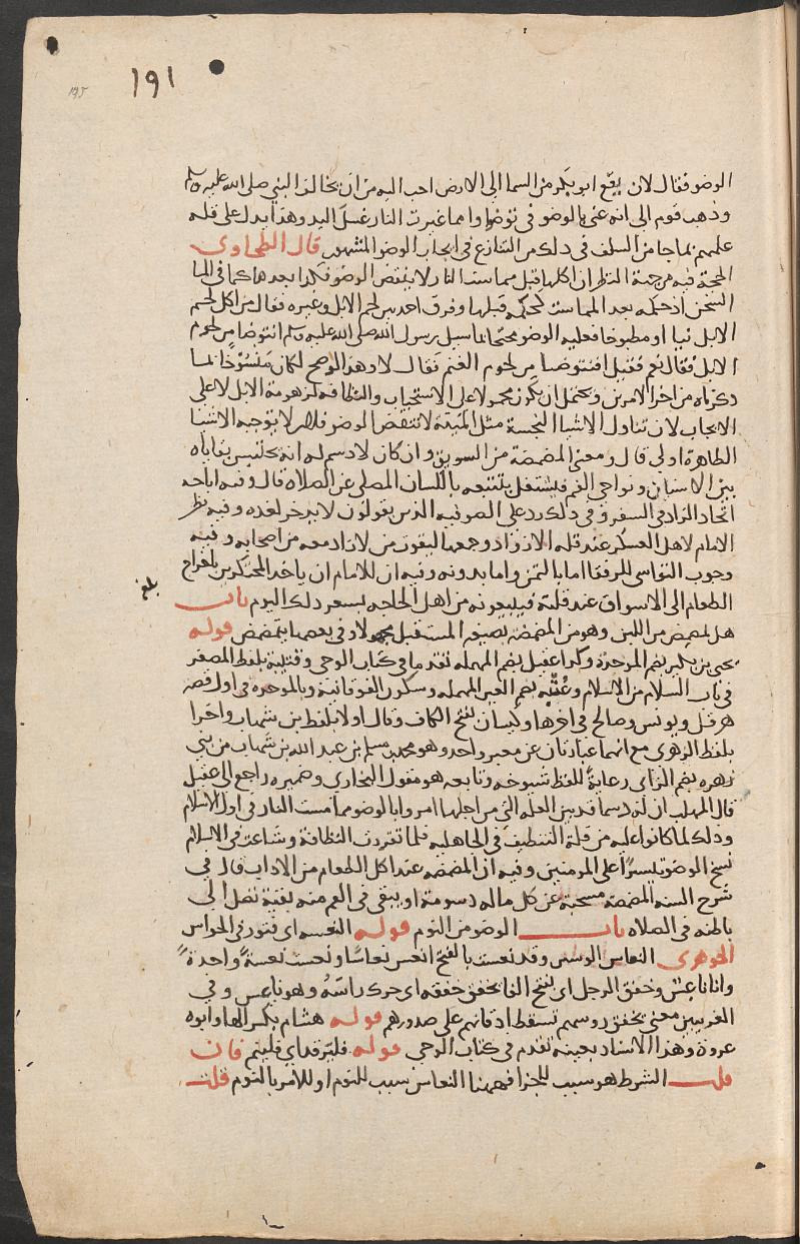 ١٩١
195
الوضو فقال لان يقع ابو بكر من السما الى الارض احب اليه من ان يخالف النبي صلى الله عليه وسلم
وذهب قوم الى انه عنى بالوضو في توضوا مما غيرت النار غسل اليد وهذا يدل على قله
علمهم بما جا من السلف في ذلك من التنازع في ايجاب الوضو المشهور قال الطحاوى
الحجة فيه من جهة النظر ان اكلها قبل مماسة النار لا ينقض الوضو فكذا بعدها كما في الما
السخن اذ حكمه بعد المماسة كحكمه قبلها وفرق احمد بين لحم الابل وغيره فقال من اكل لحم
الابل نيا او مطبوخا فعليه الوضو محتجا بما سيل رسول الله صلى الله عليه وسلم انتوضا من لحوم
الابل فقال نعم فقيل افنتوضا من لحوم الغنم فقال لا وهذا لو صح لكان منسوخا لما
ذكرناه من اخر الامرين ويحتمل ان يكون محمولا على الاستحباب والنظافة لزهومة الابل لا على
الايجاب لان تناول الاشيا النجسة مثل الميتة لا تنقض الوضو فلان لا يوجبه الاشيا
الطاهرة اولى قال ومعنى المضمضة من السويق وان كان لا دسم له انه تحتبس بقاياه
بين الاسنان ونواحي الفم فيشتغل بتتبعه باللسان المصلى عن الصلاه قال وفيه اباحه
اتخاد الزاد في السفر وفي ذلك رد على الصوفيه الذين يقولون لا يدخر لغد وفيه نظر
الامام لاهل العسكر عند قلة الازواد وجمعها ليقوت من لا زاد معه من اصحابه وفيه
وجوب التواسي للرفقا اما بالثمن واما بدونه وفيه ان للامام ان ياخد المحتكرين باخراج
الطعام الى الاسواق عند قلته فيبيعونه من اهل الحاجه بسعر ذلك اليوم باب
بلغ
هل يمضمض من اللبن وهو من المضمضه بصيغة المستقبل مجهولا وفي بعضها يتمضمض قوله
يحيى بن بكير بضم الموحدة وكذا عقيل بضم المهمله تقدما في كتاب الوحي وقتيبة بلفظ المصغر
في باب السلام من الاسلام وعتبه بضم العين المهمله وسكون الفوقانية وبالموحده في اول قصه
هرقل ويونس وصالح في اخرها وكيسان بفتح الكاف وقال اولا بلفظ بن شهاب واخرا
بلفظ الزهري مع انهما عبارتان عن معبر واحد وهو محمد بن مسلم بن عبد الله بن شهاب من بني
زهره بضم الزاى رعاية للفظ شيوخه وتابعه هو مقول البخاري وضميره راجع الى عقيل
قال المهلب ان له دسما قد بين العلة التي من اجلها امروا بالوضو مما مست النار في اول الاسلام
وذلك لما كانوا عليه من قلة التنظيف في الجاهليه فلما تقررت النظافة وشاعت في الاسلام
نسخ الوضو تيسيرا على المومنين وفيه ان المضمضه عند اكل الطعام من الاداب قال في
شرح السنه المضمضة مستحبة عن كل ماله دسومة او يبقى في الفم منه بقية تصل الى
باطنه في الصلاه باب الوضو من النوم قوله النعسه اى فتور في الحواس
الجوهرى النعاس الوسن وقد نعست بالفتح انعس نعاسا ونعست نعسة واحدة
وانا ناعس وخفق الرجل اى بفتح الفا يخفق خفقه اى حرك راسه وهو ناعس وفي
الغريبين معنى يخفق روسهم تسقط اذقانهم على صدورهم قوله هشام بكسر الها وابوه
عروة وهذا الاسناد بعينه تقدم في كتاب الوحي قوله فليرقد اي فلينم فان
قلت الشرط هو سبب للجزا فههنا النعاس سبب للنوم او للامر بالنوم قلت